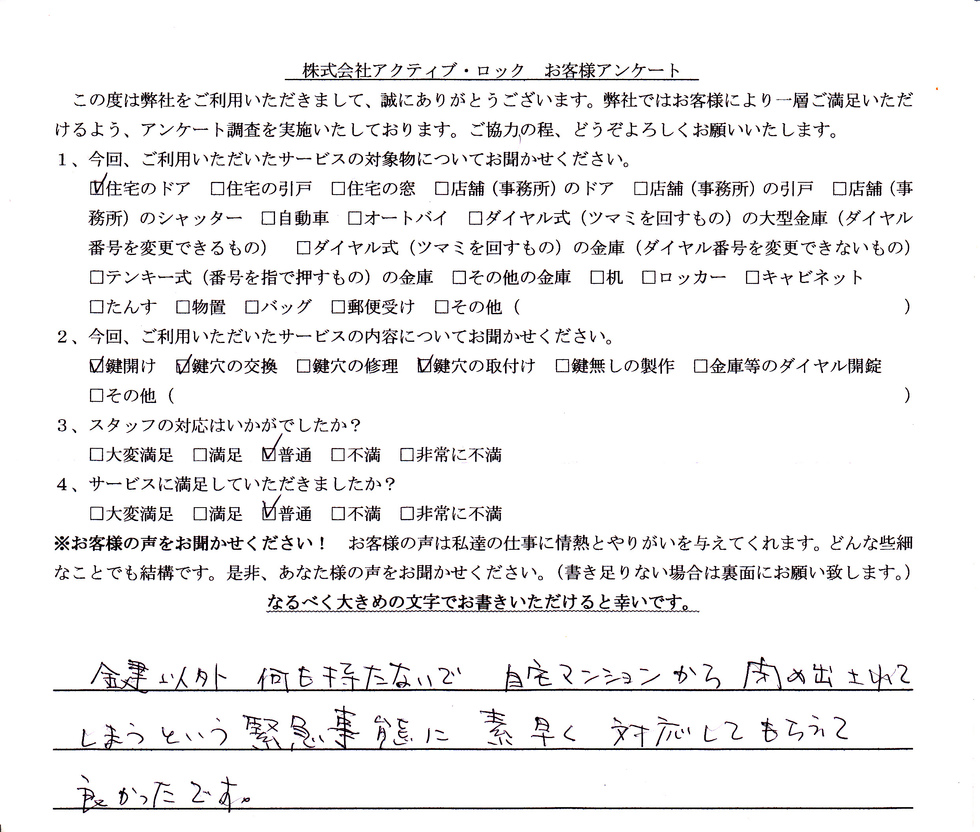 株式会社アクティブ・ロック　お客様アンケート
この度は弊社をご利用いただきまして、誠にありがとうございます。弊社ではお客様により一層ご満足いただ
けるよう、アンケート調査を実施いたしております。ご協力の程、どうぞよろしくお願いいたします。
1、今回、ご利用いただいたサービスの対象物についてお聞かせください。
☑住宅のドア　□住宅の引戸　□住宅の窓　□店舗（事務所）のドア　□店舗（事務所）の引戸　□店舗（事
務所）のシャッター　□自動車　□オートバイ　□ダイヤル式（ツマミを回すもの）の大型金庫（ダイヤル
番号を変更できるもの）　□ダイヤル式（ツマミを回すもの）の金庫（ダイヤル番号を変更できないもの）
□テンキー式（番号を指で押すもの）の金庫　□その他の金庫　□机　□ロッカー　□キャビネット
□たんす　□物置　□バッグ　□郵便受け　□その他（　　　）
2、今回、ご利用いただいたサービスの内容についてお聞かせください。
☑鍵開け　☑鍵穴の交換　□鍵穴の修理　☑鍵穴の取付け　□鍵無しの製作　□金庫等のダイヤル開錠
□その他（　　　）
3、スタッフの対応はいかがでしたか？
□大変満足　□満足　☑普通　□不満　□非常に不満
4、サービスに満足していただきましたか？
□大変満足　□満足　☑普通　□不満　□非常に不満
※お客様の声をお聞かせください！　お客様の声は私達の仕事に情熱とやりがいを与えてくれます。どんな些細
なことでも結構です。是非、あなた様の声をお聞かせください。（書き足りない場合は裏面にお願い致します。）
なるべく大きめの文字でお書きいただけると幸いです。
鍵以外 何も持たないで 自宅マンションから 閉め出されて
しまうという緊急事態に 素早く 対応してもらえて
良かったです。